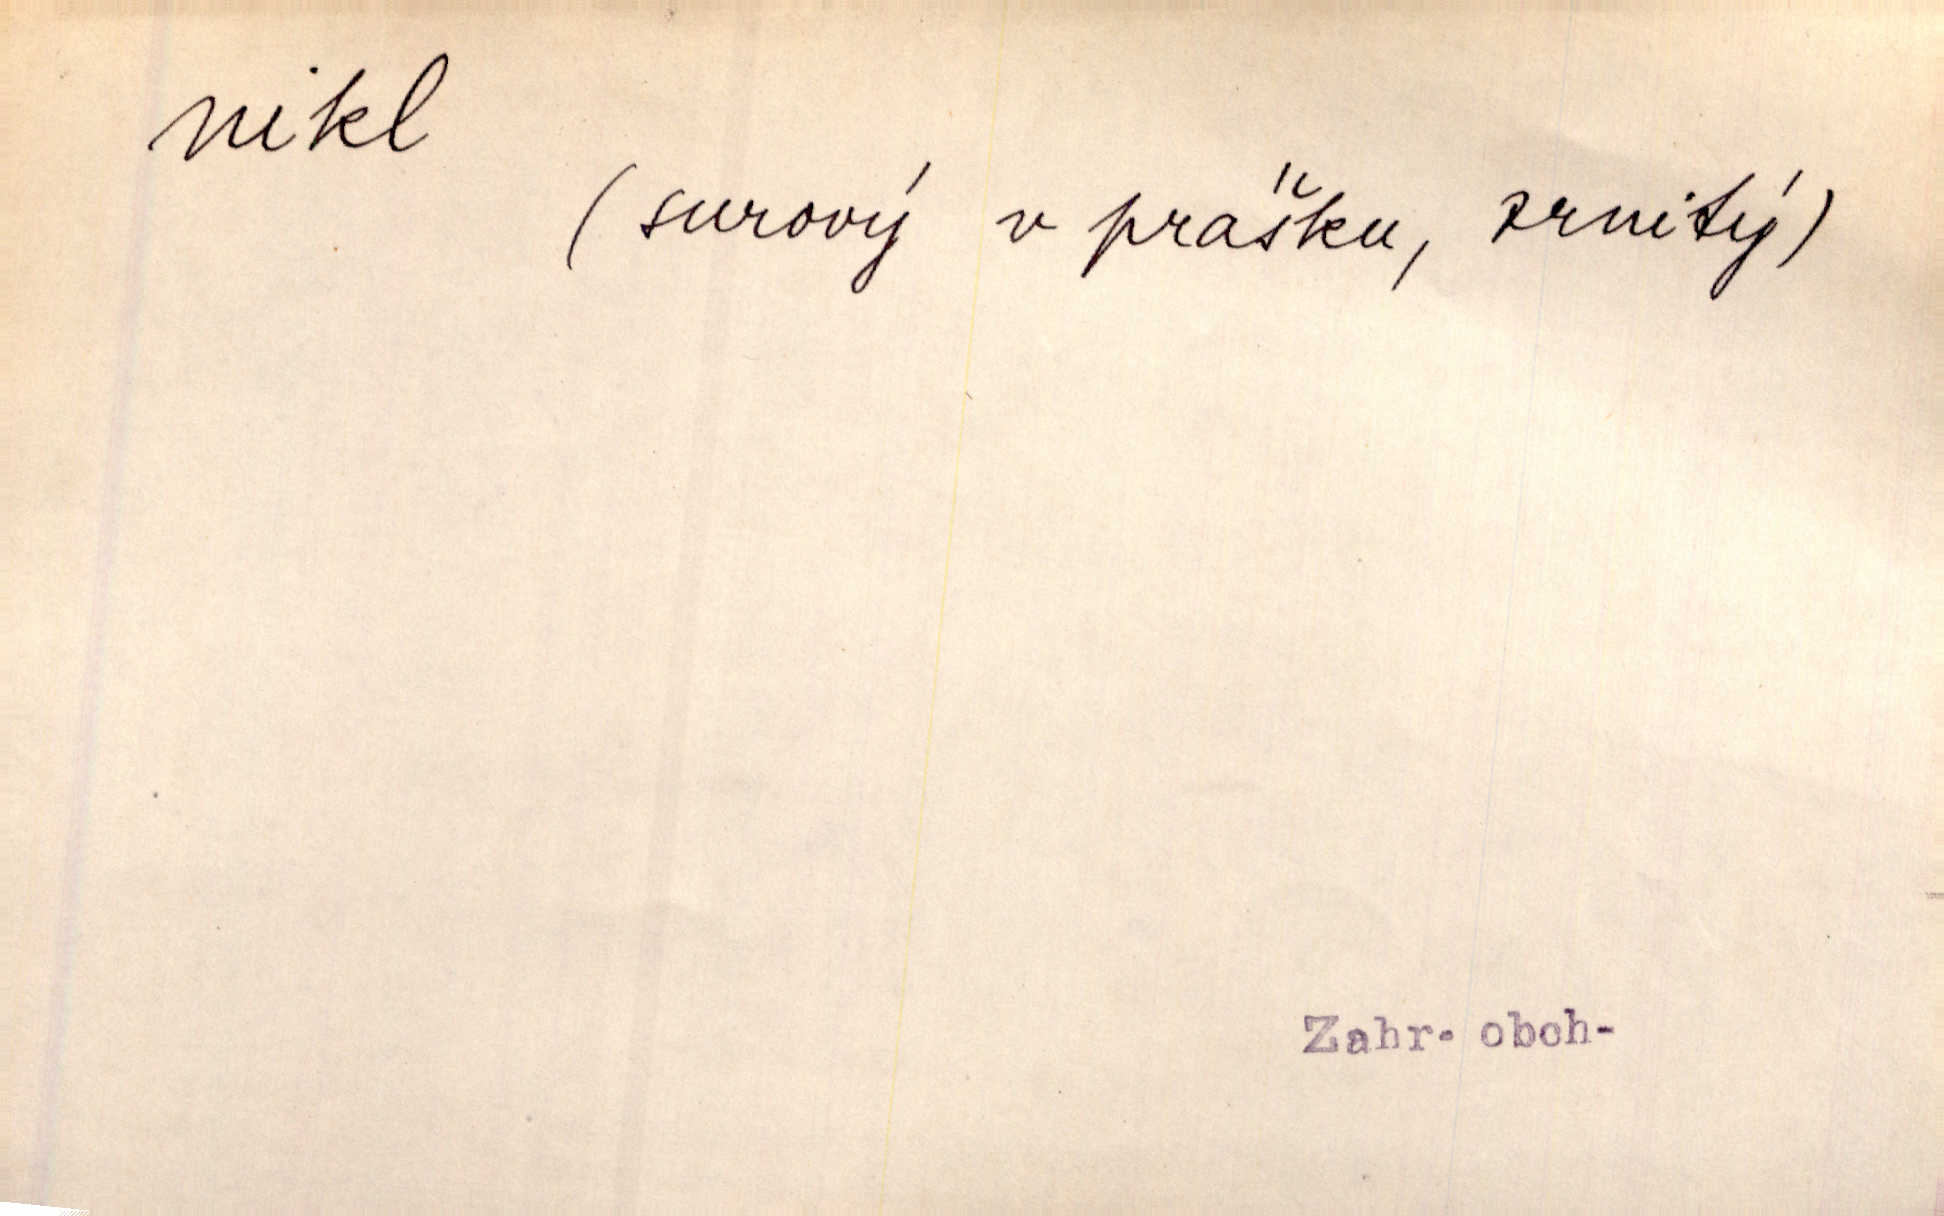 nikl
(surový v prášku, zrnitý)
Zahr. obch-